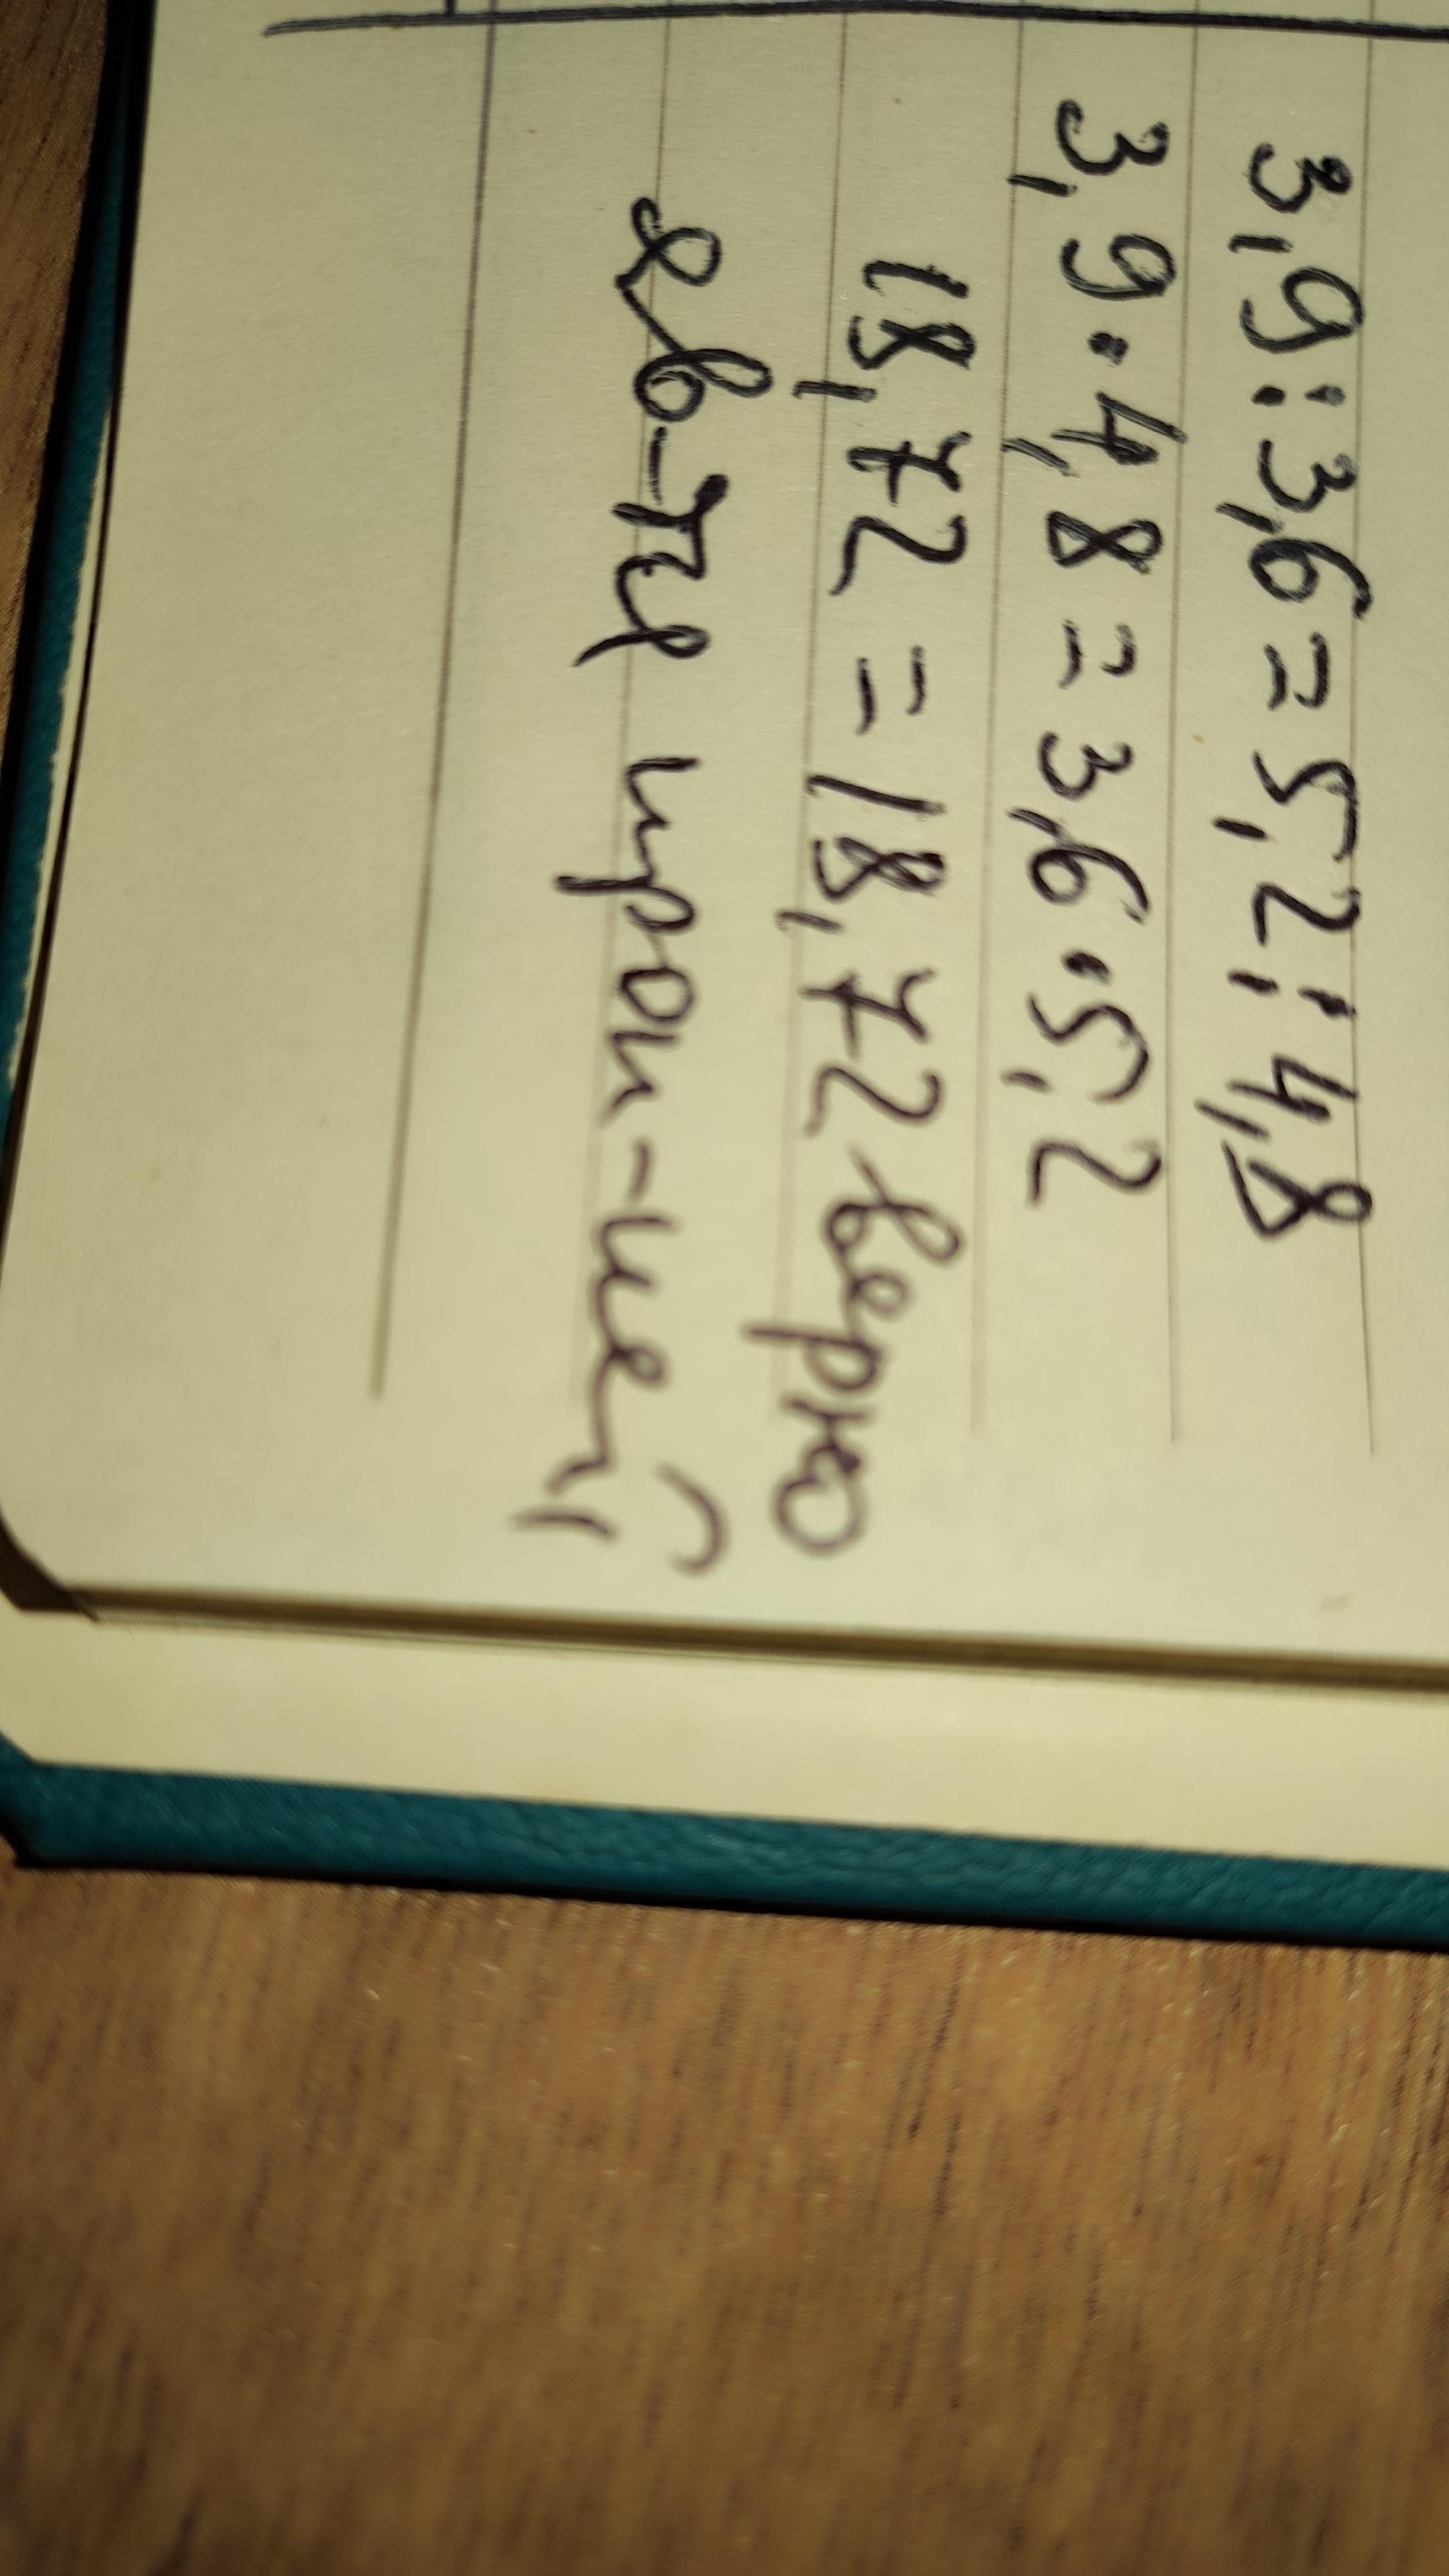 3,9:3,6=5,2:4,8
3,9·4,8=3,6·5,2
18,72=18,72 верно
яв-тся проп-ией